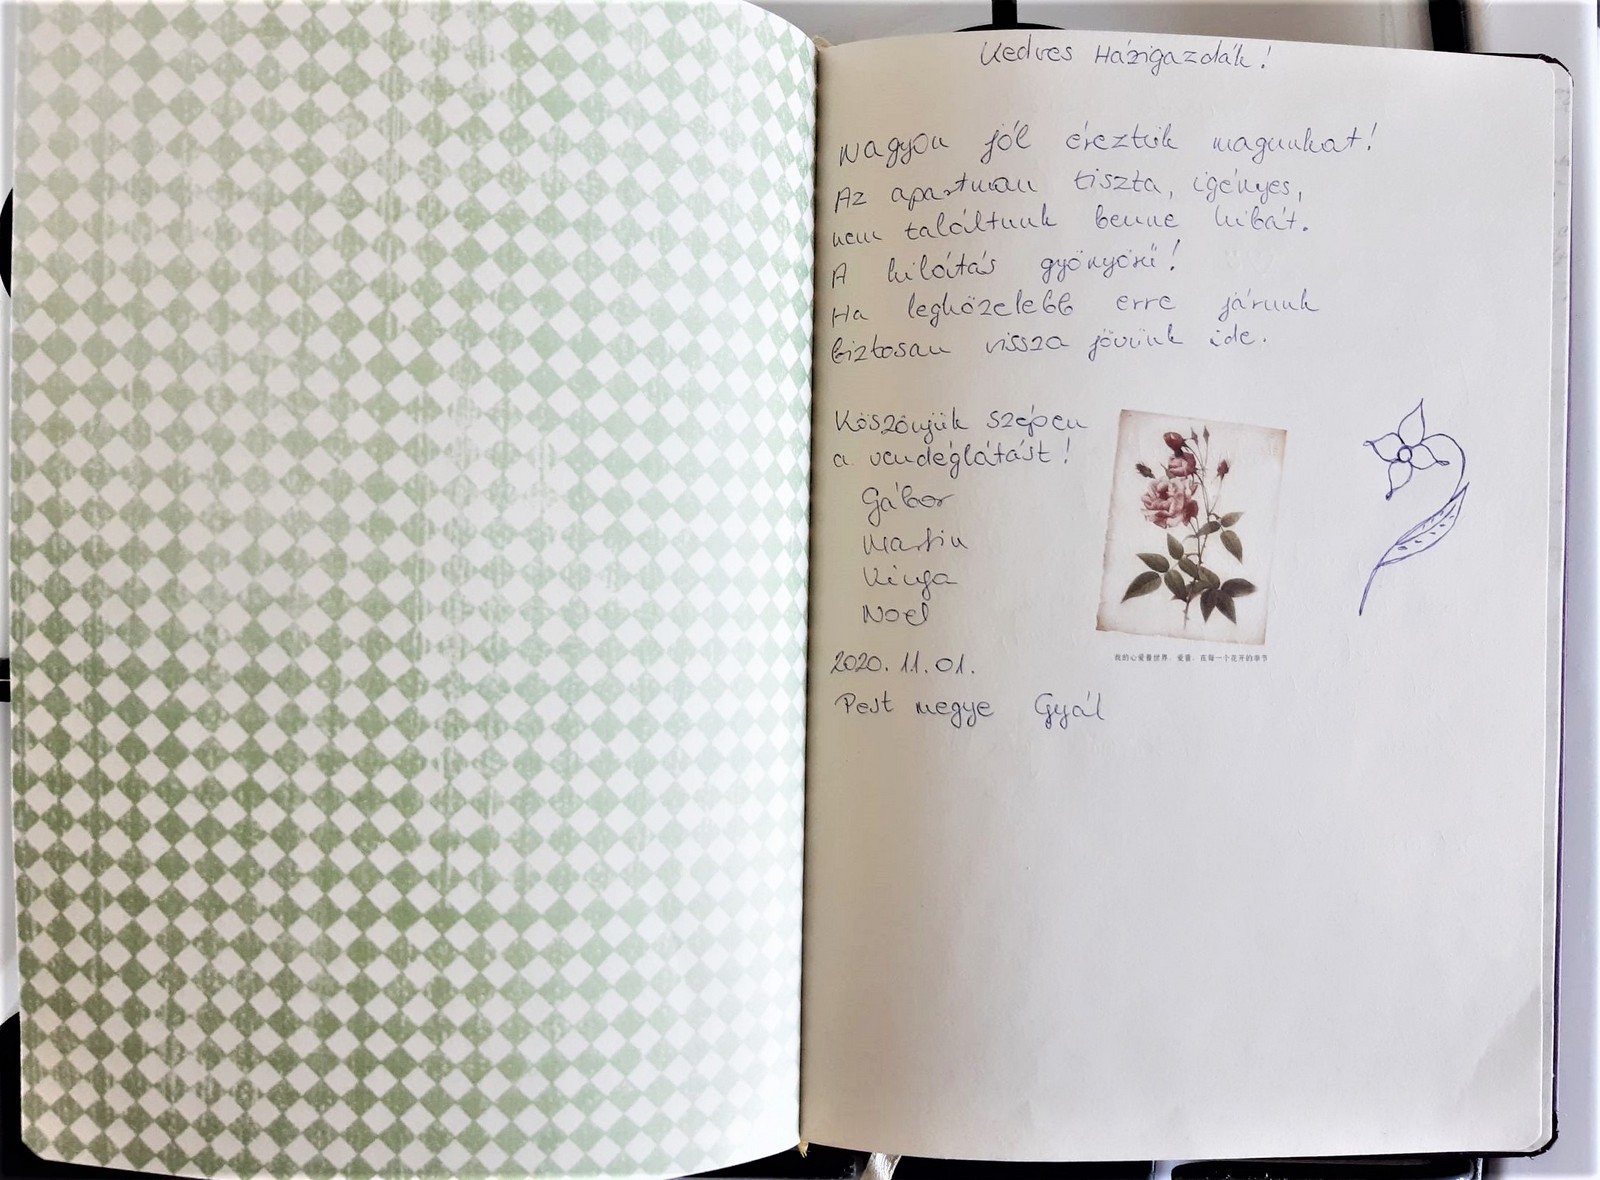 Kedves Házigazdák!
Nagyon jól éreztük magunkat!
Az apartman tiszta, igényes,
nem találtunk benne hibát.
A kilátás gyönyörű!
Ha legközelebb erre járunk
biztosan vissza jövünk ide.
Köszönjük szépen
a vendéglátást!
Gábor
Martin
Kinga
Noel
2020. 11. 01.
Pest megye Gyál
我的心爱着世界，爱着，在每一个花开的季节